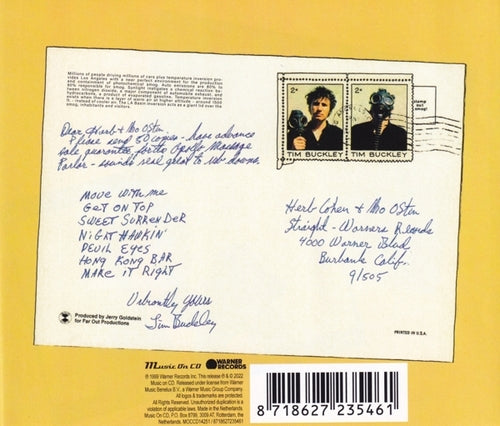 Millions of people driving millions of cars plus temperature inversion pro-
vides Los Angeles with a near perfect environment for the production
of photochemical smog. Auto emissions are 80% to
90% responsible for smog. Sunlight instigates a chemical reaction be-
tween nitrogen dioxide, a major component of automobile exhaust, and
hydrocarbons, a product of evaporated gasoline. Temperature inversion
exists when there is a layer of warm air at higher altitude - around 1500
ft. - instead of cooler air. The LA Basin inversion acts as a giant lid over the
smog, inhabitants and visitors.
2¢
TIM BUCKLEY
2¢
TIM BUCKLEY
stamp
out
smog!
Dear Herb & Mo Ostin
Please send 50 copies - have advance
sale guarantee for the Apollo Massage
Parlor - sounds real great to us down
MOVE WITH ME
GET ON TOP
SWEET SURRENDER
NIGHT HAWKIN'
DEVIL EYES
HONG KONG BAR
MAKE IT RIGHT
Vibrantly Yours
Tim Buckley
Herb Cohen & Mo Ostin
Straight - Warners Records
4000 Warner Blvd
Burbank Calif.
91505
Produced by Jerry Goldstein
for Far Out Productions
PRINTED IN U.S.A.
Music On CD
WARNER
RECORDS
℗ 1989 Warner Records Inc. This release ℗ & © 2022
Music on CD. Released under license from Warner
Music Benelux B.V., a Warner Music Group Company.
All logos & trademarks are protected.
All Rights Reserved. Unauthorized duplication is a
violation of applicable laws. Made in the Netherlands.
Music On CD, P.O. Box 8599, 3009 AN, Rotterdam, the
Netherlands. MOCCD14251 / 8718627235461
8 718627 235461